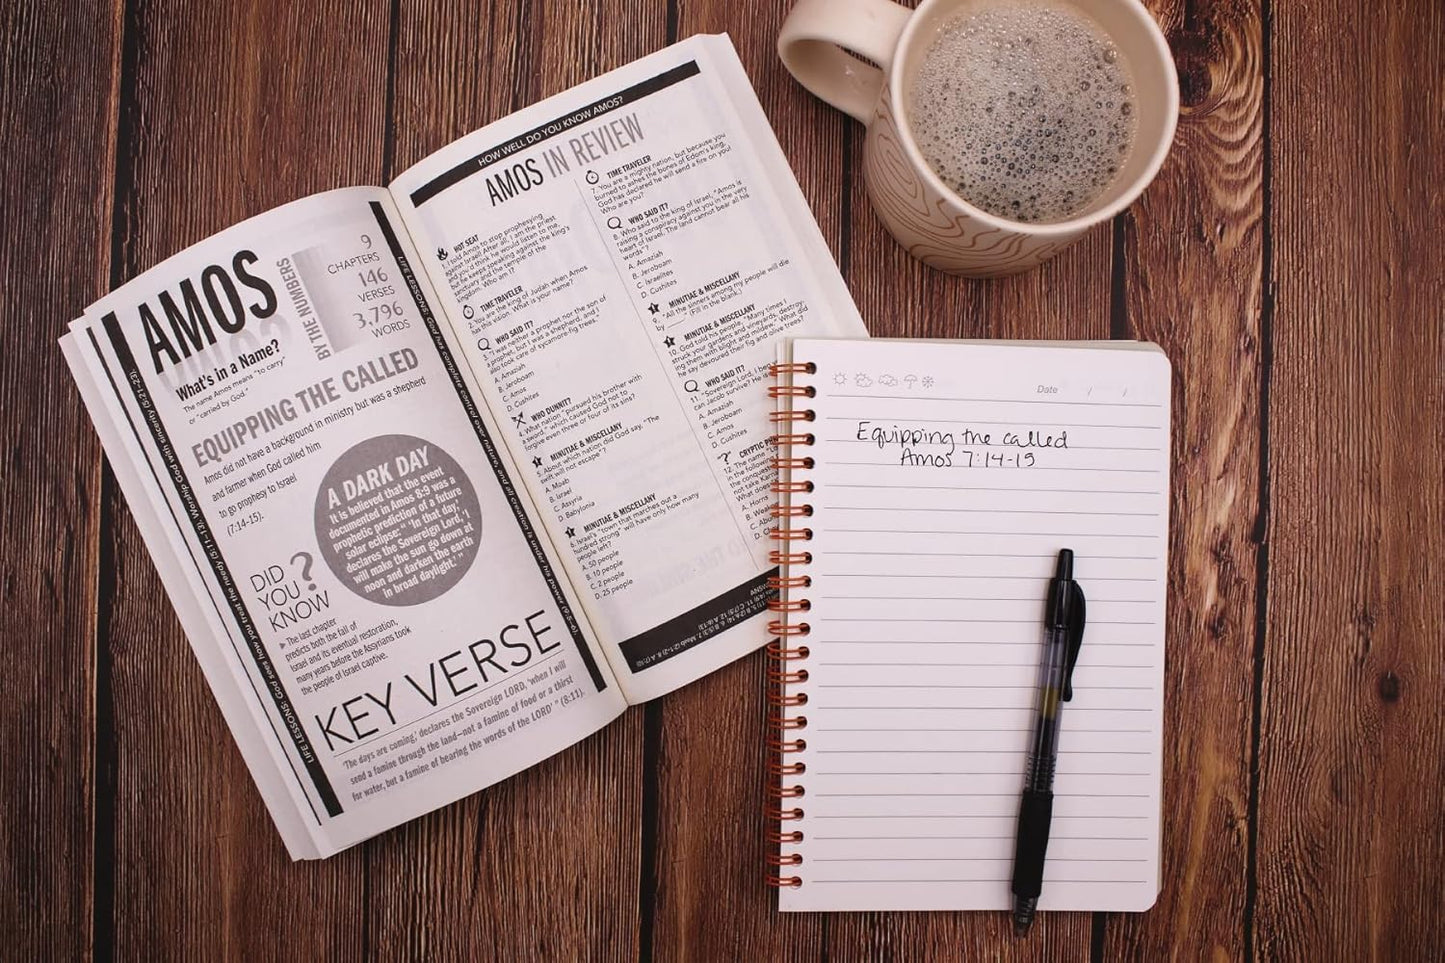 LIFE LESSONS: God sees how you treat the needy (5:11–13); Worship God with sincerity (5:21–23);
AMOS
What's in a Name?
The name Amos means "to carry"
or "carried by God."
BY THE NUMBERS
9
CHAPTERS
146
VERSES
3,796
WORDS
EQUIPPING THE CALLED
Amos did not have a background in ministry but was a shepherd
and farmer when God called him
to go prophesy to Israel
(7:14–15).
A DARK DAY
It is believed that the event
documented in Amos 8:9 was a
prophetic prediction of a future
solar eclipse: " 'In that day,'
declares the Sovereign Lord, 'I
will make the sun go down at
noon and darken the earth
in broad daylight.' "
DID
YOU
KNOW
?
▶ The last chapter
predicts both the fall of
Israel and its eventual restoration,
many years before the Assyrians took
the people of Israel captive.
KEY VERSE
"The days are coming,' declares the Sovereign LORD, 'when I will
send a famine through the land—not a famine of food or a thirst
for water, but a famine of hearing the words of the LORD' " (8:11).
LIFE LESSONS: God has complete control over nature, and all creation
HOW WELL DO YOU KNOW AMOS?
AMOS IN REVIEW
HOT SEAT
1. I told Amos to stop prophesying
against Israel! After all, I am the priest
and you'd think he would listen to me,
but he keeps speaking against the king's
sanctuary and the temple of the
kingdom. Who am I?
TIME TRAVELER
2. You are the king of Judah when Amos
has this vision. What is your name?
WHO SAID IT?
3. "I was neither a prophet nor the son of
a prophet, but I was a shepherd, and I
also took care of sycamore-fig trees."
A. Amaziah
B. Jeroboam
C. Amos
D. Cushites
WHO DUNNIT?
4. What nation "pursued his brother with
a sword," which caused God not to
forgive even three or four of its sins?
MINUTIAE & MISCELLANY
5. About which nation did God say, "The
swift will not escape"?
A. Moab
B. Israel
C. Assyria
D. Babylonia
MINUTIAE & MISCELLANY
6. Israel's "town that marches out a
hundred strong" will have only how many
people left?
A. 50 people
B. 10 people
C. 2 people
D. 25 people
TIME TRAVELER
7. You are a mighty nation, but because you
burned to ashes the bones of Edom's king,
God has declared he will send a fire on you!
Who are you?
WHO SAID IT?
8. Who said to the king of Israel, "Amos is
raising a conspiracy against you in the very
heart of Israel. The land cannot bear all his
words"?
A. Amaziah
B. Jeroboam
C. Israelites
D. Cushites
MINUTIAE & MISCELLANY
9. "All the sinners among my people will die
by ____." (Fill in the blank.)
MINUTIAE & MISCELLANY
10. God told his people, "Many times I
struck your gardens and vineyards, destroy-
ing them with blight and mildew." What did
he say devoured their fig and olive trees?
WHO SAID IT?
11. "Sovereign Lord, I
can Jacob survive? He is
A. Amaziah
B. Jeroboam
C. Amos
D. Cushites
CRYPTIC
12. The name
in the following
the conquest
not take
What does
A. Horns
B.
C.
D.
Date / /
Equipping the called
Amos 7:14-15